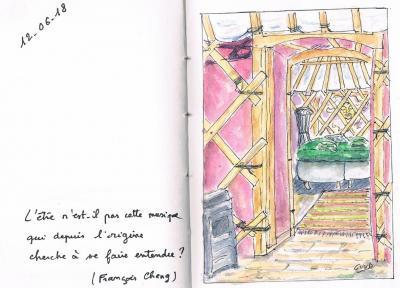 12-06-18
L'être n'est-il pas cette musique
qui depuis l'origine
cherche à se faire entendre ?
(François Cheng)